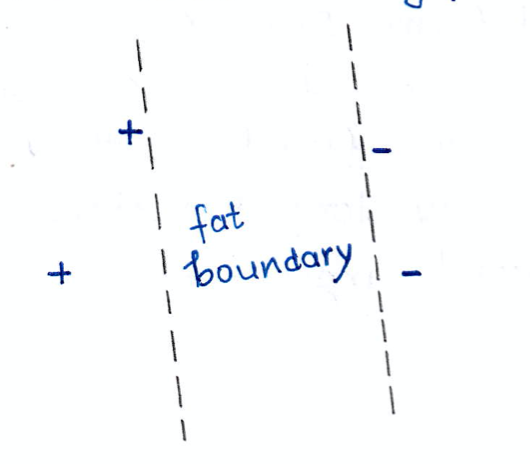 +
-
fat
boundary
+
-